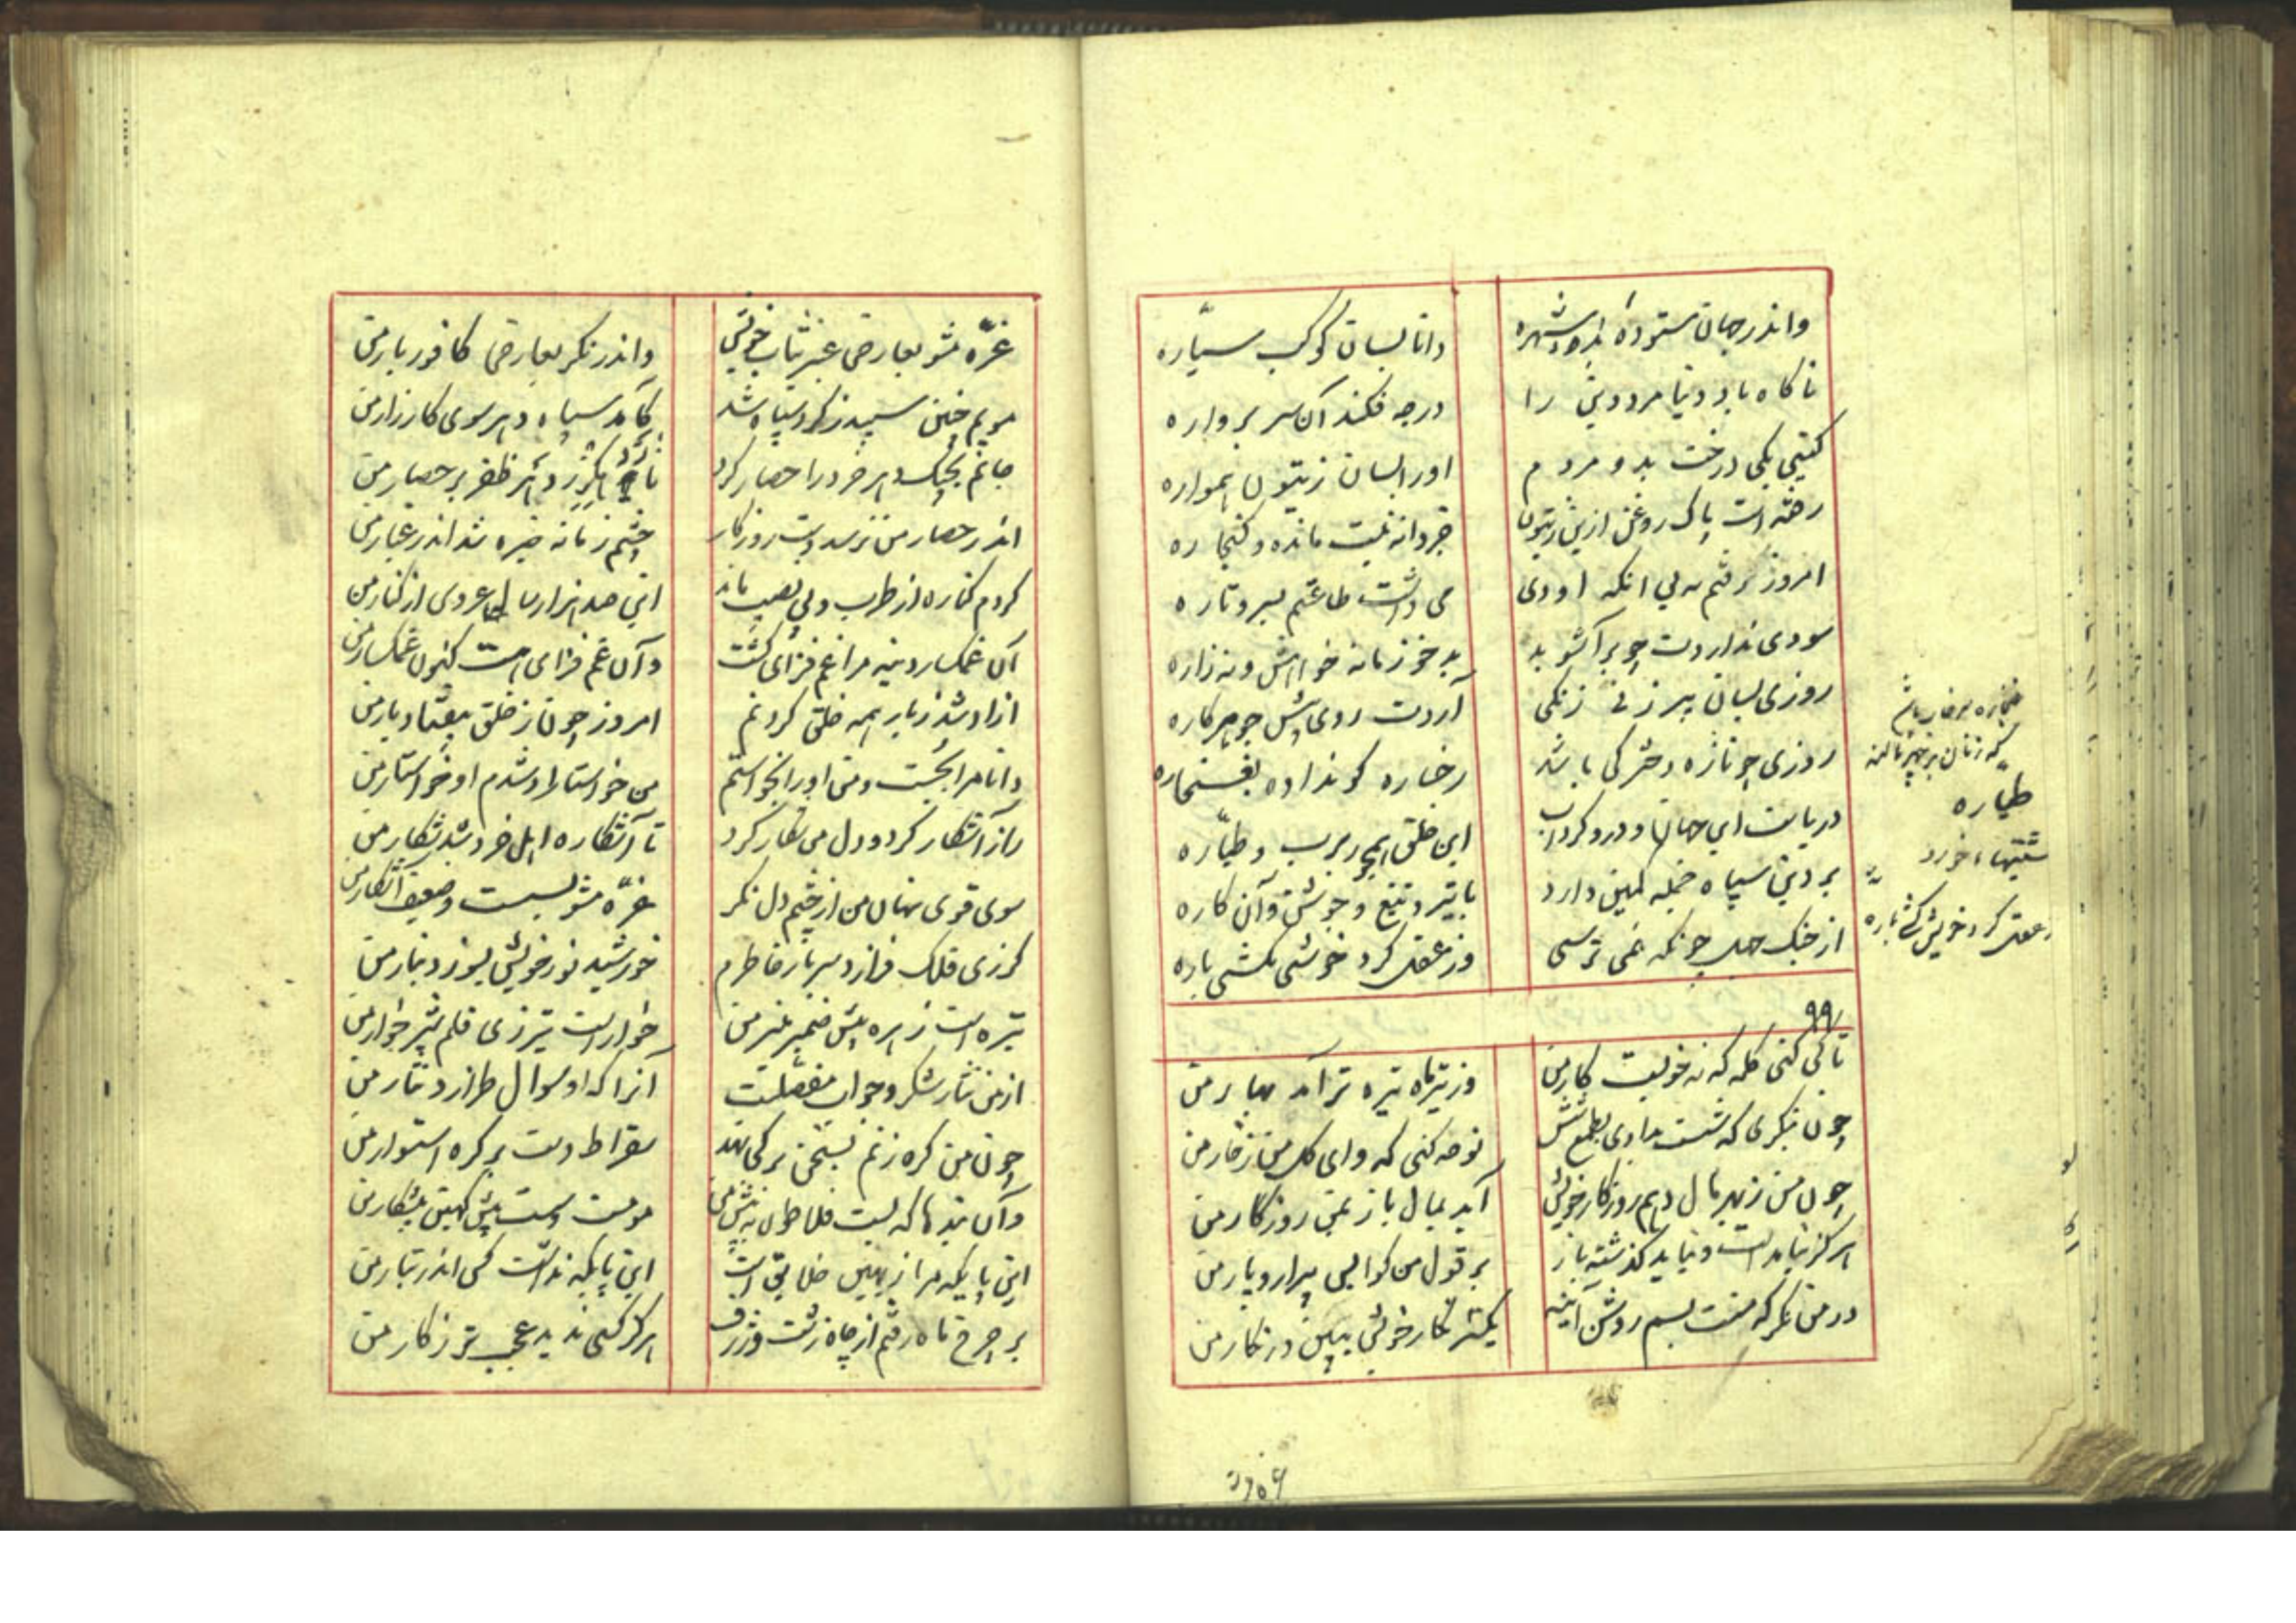 واندر جهان ستوده بدو شهره
دانا بسان کوکب سیّاره
ناکاه باد دنیا مر دین را
در چه فکند از سر پرواره
کیتی یکی درخت بد و مردم
او را بسان زیتون همواره
رفته است پاک روغن ازین زیتون
جز دانه نیست مانده و کنجاره
امروز نرم بی انکه او دی
می داشت طاعتم بسر و تاره
سودی ندارد چو برآشوبد
بدخو زمانه خواهش و نه زاره
روزی بسان پیر زنی زنکی
آردت روی پیش چو هر کاره
روزی چو تازه دخترکی باشد
رخساره کونه داده بغنجاره
دریاست این جهان و درو کرداب
این خلق همچو زبزب و طیّاره
بر دین سپاه جمله کمین دارد
با تیر و تیغ و جوشن و آن کاره
از جنک جهل چونکه نمی ترسی
وز عقل کرد خویش نکشی باره
غنجاره سرخاب باشد
که زنان بر چهره مالند
طیاره
کشتیهاء خورد
ز عقل کرد خویش کش باره
۹۹
تا کی کنی کله که نه خوبست کار من
وز تیر ماه تیره تر آمد بهار من
چون بنکری که شست بدادی بطمع شش
نوحه کنی که وای کل من ز خار من
چون من ز بهر مال دهم روزکار خویش
آید بمال باز بمن روزکار من
هرکز نیامد است و نیاید کذشته باز
بر قول من کوا بس پیرار و پار من
در من نکر که منت بسم روشن آینه
یکسر نکار خویش ببین در نکار من
غرّه مشو بعارض عنبر نبات خویش
واندر نکر بعارض کافور بار من
مویم چنین سپید ز کرد سپاه شد
کامد سپاه دهر سوی کارزار من
جانم بجنک دهر خرد را حصار کرد
تا زو هکرز دهر ظفر بر حصار من
اندر حصار من نرسد دست روزکار
چشم زمانه خیره شد اندر غبار من
کردم کناره از طرب و بی نصیب ماند
این صد هزار ساله عروس از کنار من
آن غمکسار دینه مرا غم فزای کشت
وآن غم فزای هست کنون غمکسار من
ازاد شد ز بار همه خلق کردنم
امروز چون ز خلق بیفتاد بار من
دانا مرا بجست و من او را بخواستم
من خواستار او شدم او خواستار من
راز آشکار کرد و دل من شکار کرد
تا آشکاره اهل خرد شد شکار من
سوی قوی نهان من از چشم دل نکر
غرّه مشو بسست و ضعیف آشکار من
کر زی فلک فرازد سر نار خاطرم
خورشید نور خویش بسوزد بنار من
تیره است زهره پیش ضمیر منیر من
خوار است تیر زی قلم تیر خوار من
از من نثار شکر و جواب مفصلست
آنرا که او سوال طرازد نثار من
چون من کره زنم بسخن بر کی نهد
سقراط دست بر کره استوار من
وآن بندها که بست فلاطون پیش بین
مومست و سست پیش کهین پیشکار من
این پایکه مرا ز بهین خلایق است
این پایکه نداشت کس اندر تبار من
بر چرخ ماه رفتم از چاه زشت و ژرف
هرکز کسی ندید عجب تر ز کار من